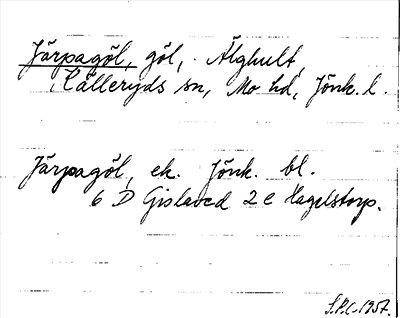 Järpagöl, göl, Älghult,
Källeryds sn, Mo hd, Jönk. l.
Järpagöl, ek. Jönk. bl.
6 D Gislaved 2 e Hagelstorp.
S.P.C. 1957.